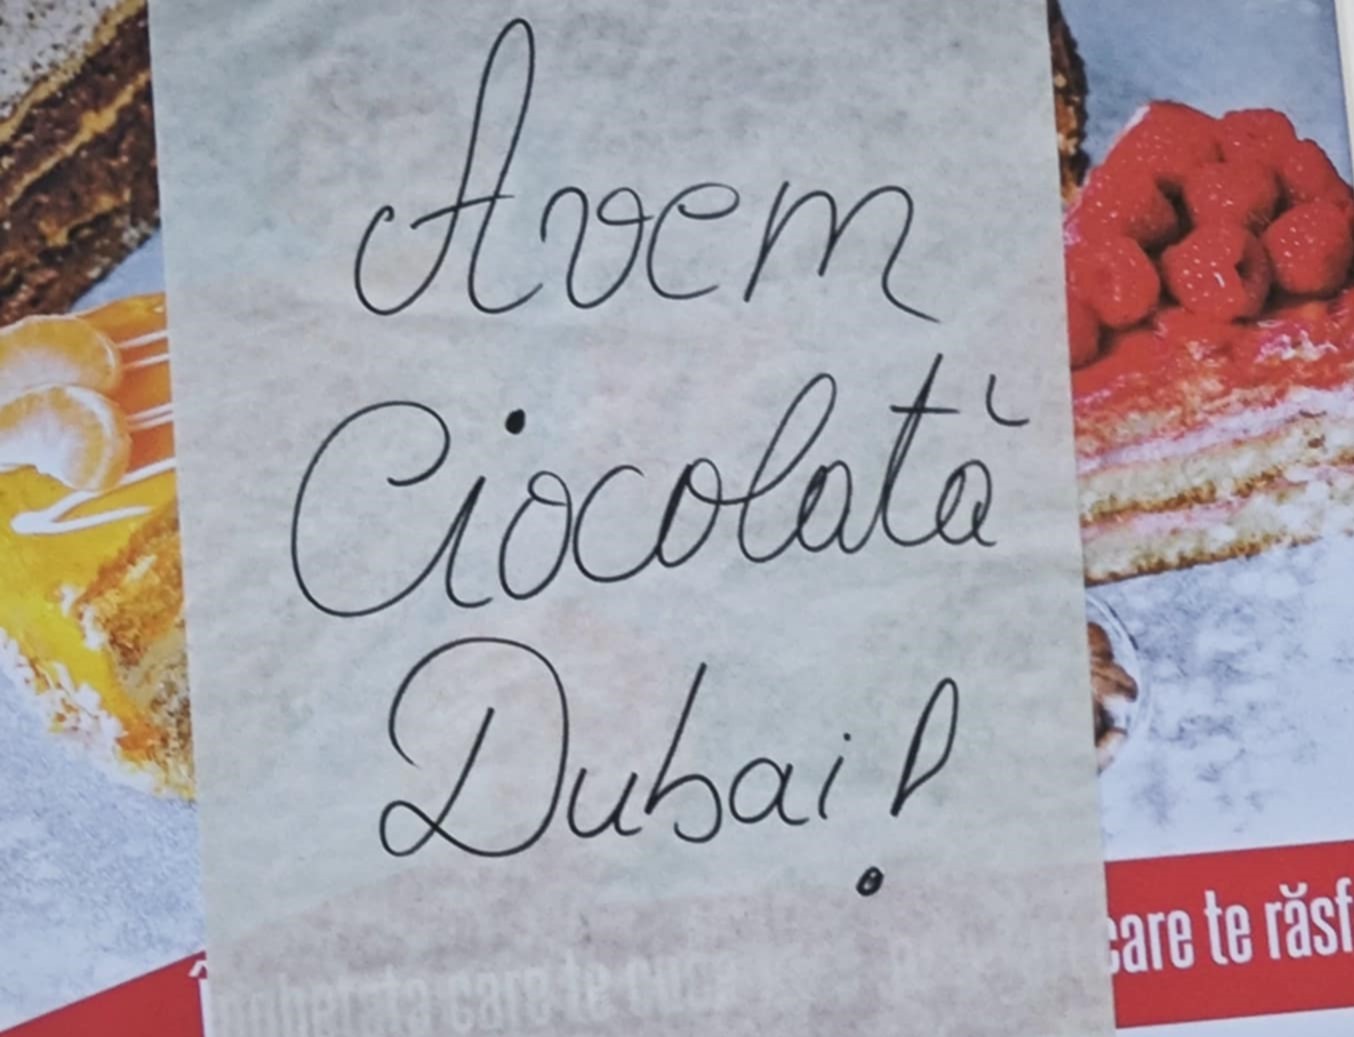 Avem
Ciocolată
Dubai!
care te răsf